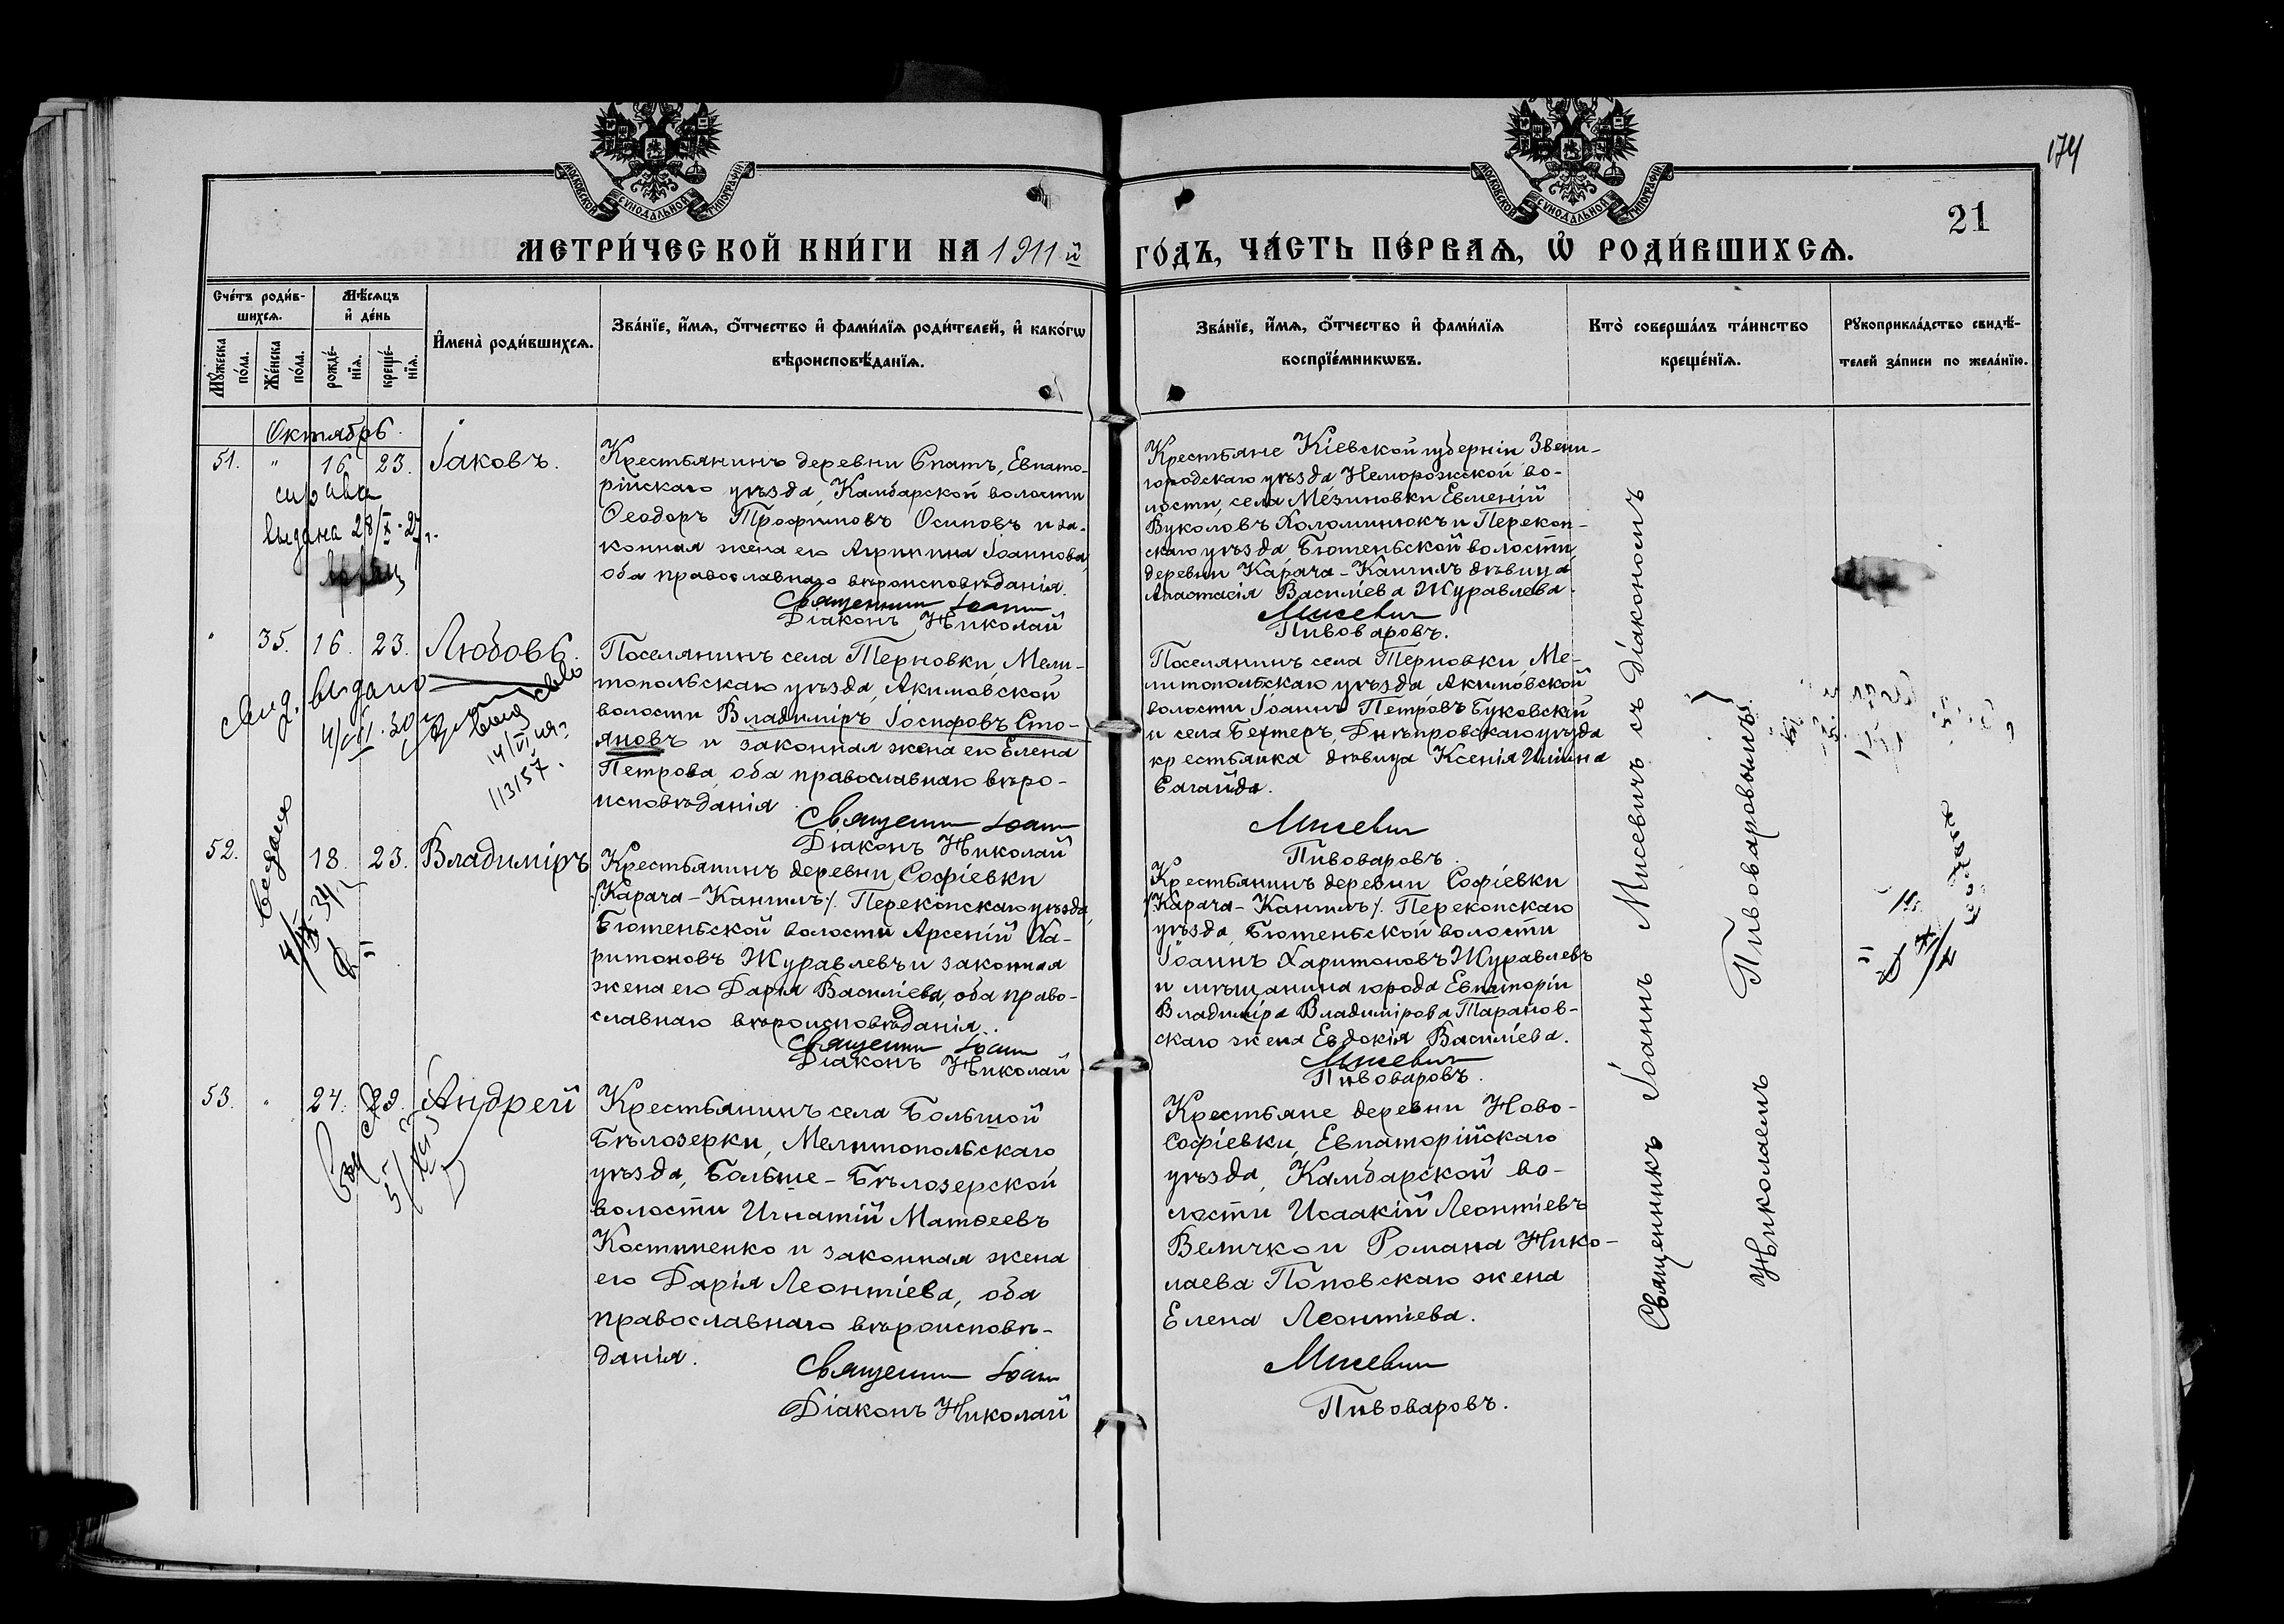 174
МОСКОВСКОЙ СѴНОДАЛЬНОЙ ТИПОГРАФІИ
МОСКОВСКОЙ СѴНОДАЛЬНОЙ ТИПОГРАФІИ
21
МЕТРИ́ЧЕСКОЙ КНИ́ГИ НА 1911 й
ГО́ДЪ, ЧА́СТЬ ПЕ́РВАѦ, Ѡ҆ РОДИ́ВШИХСѦ.
Сче́тъ роди́в-
шихсѧ.
Мꙋ́жеска
по́ла.
Же́нска
по́ла.
Мѣ́сѧцъ
и҆ де́нь
рожде́-
нїѧ.
креще́-
нїѧ.
И҆мена̀ роди́вшихсѧ.
Зва́нїе, и҆́мѧ, ѻ҆́тчество и҆ фами́лїѧ роди́телей, и҆ како́гѡ
вѣроисповѣ́данїѧ.
Зва́нїе, и҆́мѧ, ѻ҆́тчество и҆ фами́лїѧ
воспрїе́мникѡвъ.
Кто̀ соверша́лъ та́инство
креще́нїѧ.
Рꙋкоприкла́дство свидѣ́-
телей за́писи по жела́нїю.
Октябрь.
51. " 16 23. Іаковъ.
справка
выдана 28/X-27г.
Крестьянинъ деревни Спатъ, Евпато-
рійскаго уѣзда, Камбарской волости
Ѳеодоръ Трофимовъ Осиповъ и за-
конная жена его Агрипина Іоаннова,
оба православнаго вѣроисповѣданія.
Священникъ Іоаннъ
Діаконъ Николай
Крестьяне Кіевской губерніи Звени-
городскаго уѣзда Неморожской во-
лости, села Мезиновки Евменій
Вуколовъ Холоминюкъ и Перекоп-
скаго уѣзда, Бютеньской волости,
деревни Карача-Кангилъ дѣвица
Анастасія Василіева Журавлева.
Мисевичъ
Пивоваровъ.
" 35. 16. 23. Любовь.
выдано
14/VI
113157.
Поселянинъ села Терновки, Мели-
топольскаго уѣзда, Акимовской
волости Владиміръ Іосифовъ Сто-
яновъ и законная жена его Елена
Петрова, оба православнаго вѣро-
исповѣданія.
Священникъ Іоаннъ
Діаконъ Николай
Поселянинъ села Терновки, Ме-
литопольскаго уѣзда Акимовской
волости Іоаннъ Петровъ Буковскій
и села Бехтеръ, Днѣпровскаго уѣзда
крестьянка дѣвица Ксенія Ильина
Сагайда.
Мисевичъ
Пивоваровъ.
52. 18. 23. Владиміръ
Выдана
Крестьянинъ деревни Софіевки
/Карача-Кангилъ/. Перекопскаго уѣзда,
Бютеньской волости Арсеній Ха-
ритоновъ Журавлевъ и законная
жена его Дарія Василіева, оба право-
славнаго вѣроисповѣданія.
Священникъ Іоаннъ
Діаконъ Николай
Крестьянинъ деревни Софіевки
/Карача-Кангилъ/. Перекопскаго
уѣзда, Бютеньской волости
Іоаннъ Харитоновъ Журавлевъ
и мѣщанина города Евпаторіи
Владиміра Владимірова Таранов-
скаго жена Евдокія Василіева.
Мисевичъ
Пивоваровъ.
53. " 24. 29. Андрей
Крестьянинъ села Большой
Бѣлозерки, Мелитопольскаго
уѣзда, Больше-Бѣлозерской
волости Игнатій Матѳеевъ
Костыненко и законная жена
его Дарія Леонтіева, оба
православнаго вѣроисповѣ-
данія.
Священникъ Іоаннъ
Діаконъ Николай
Крестьяне деревни Ново-
Софіевки, Евпаторійскаго
уѣзда, Камбарской во-
лости Исаакій Леонтіевъ
Величко и Романа Нико-
лаева Поповскаго жена
Елена Леонтіева.
Мисевичъ
Пивоваровъ.
Священникъ Іоаннъ Мисевичъ съ діакономъ
Николаемъ Пивоваровымъ.